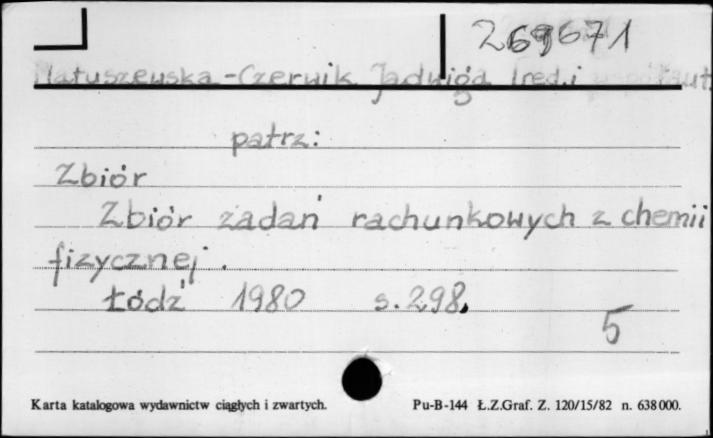 269671
Matuszewska-Czerwik Jadwiga [red.i współaut.
patrz:
Zbiór
Zbiór zadań rachunkowych z chemii
fizycznej.
Łódź 1980 s.298.
5
Karta katalogowa wydawnictw ciągłych i zwartych. Pu-B-144 Ł.Z.Graf. Z. 120/15/82 n. 638000.